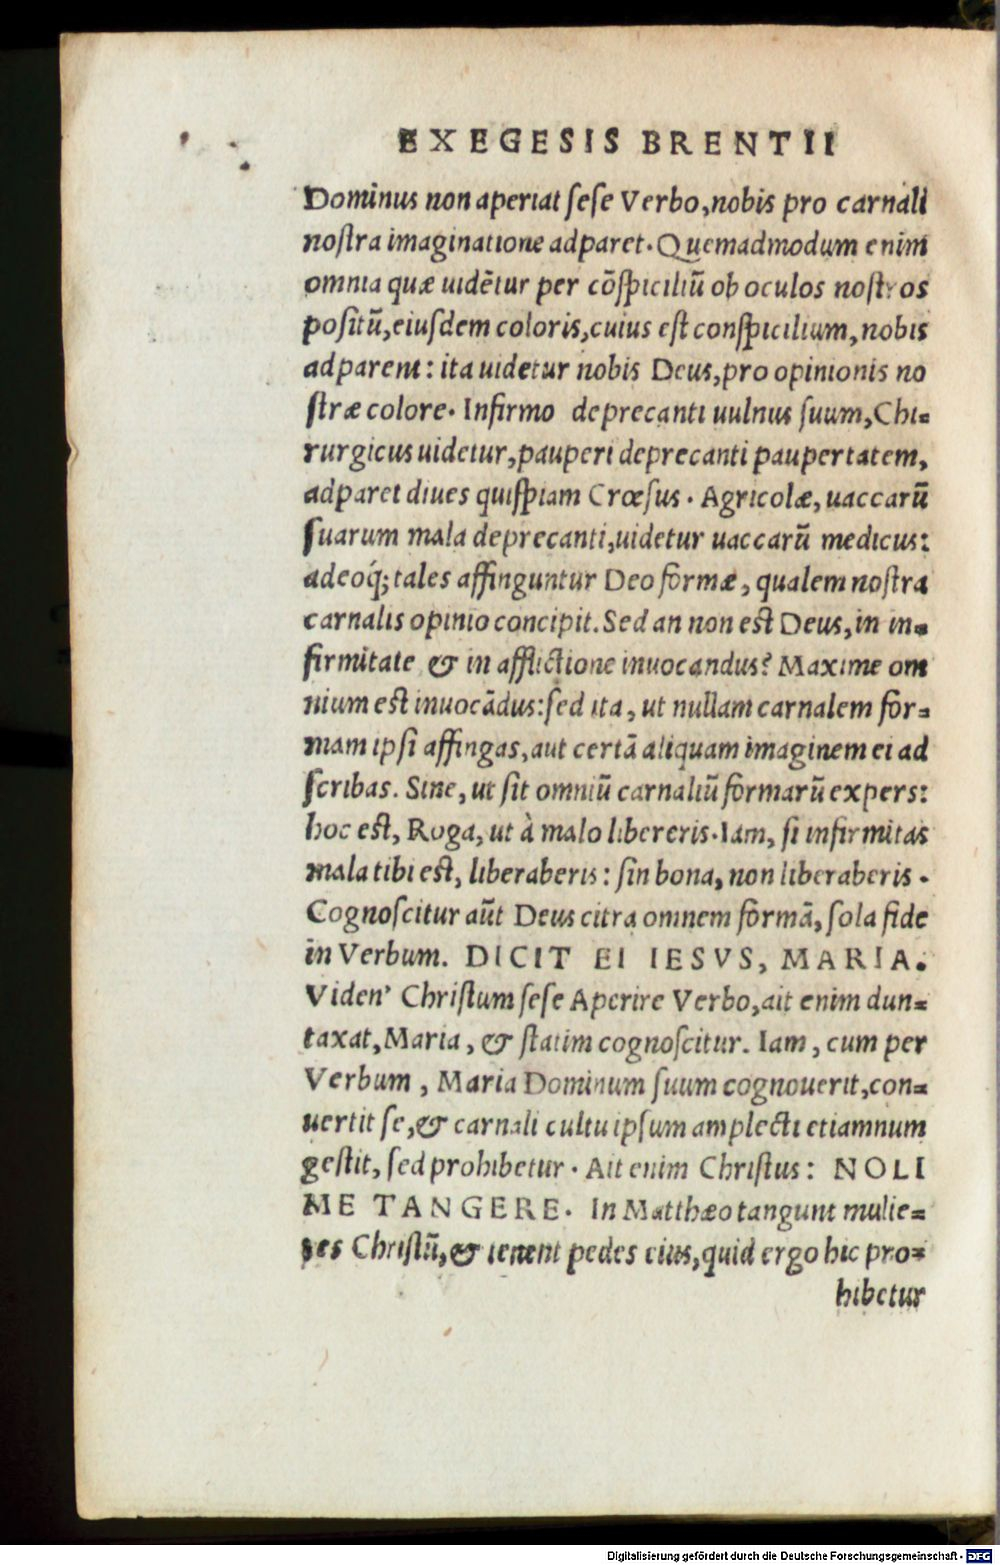 EXEGESIS BRENTII
Dominus non aperiat ſeſe Verbo, nobis pro carnali
noſtra imaginatione adparet. Quemadmodum enim
omnia quæ uidētur per cōſpiciliū ob oculos noſtros
poſitū, eiuſdem coloris, cuius eſt conſpicilium, nobis
adparent: ita uidetur nobis Deus, pro opinionis no
ſtræ colore. Infirmo deprecanti uulnus ſuum, Chi=
rurgicus uidetur, pauperi deprecanti paupertatem,
adparet diues quiſpiam Crœſus. Agricolæ, uaccarū
ſuarum mala deprecanti, uidetur uaccarū medicus:
adeoq́; tales affinguntur Deo formæ, qualem noſtra
carnalis opinio concipit. Sed an non eſt Deus, in in=
firmitate & in afflictione inuocandus? Maxime om
nium eſt inuocādus: ſed ita, ut nullam carnalem for=
mam ipſi affingas, aut certā aliquam imaginem ei ad
ſcribas. Sine, ut ſit omniū carnaliū formarū expers:
hoc eſt, Roga, ut à malo libereris. Iam, ſi infirmitas
mala tibi eſt, liberaberis: ſin bona, non liberaberis.
Cognoſcitur aūt Deus citra omnem formā, ſola fide
in Verbum. DICIT EI IESVS, MARIA.
Viden' Chriſtum ſeſe Aperire Verbo, ait enim dun=
taxat, Maria, & ſtatim cognoſcitur. Iam, cum per
Verbum, Maria Dominum ſuum cognouerit, con=
uertit ſe, & carnali cultu ipſum amplecti etiamnum
geſtit, ſed prohibetur. Ait enim Chriſtus: NOLI
ME TANGERE. In Matthæo tangunt mulie=
res Chriſtū, & tenent pedes eius, quid ergo hic pro=
hibetur
Digitalisierung gefördert durch die Deutsche Forschungsgemeinschaft - DFG